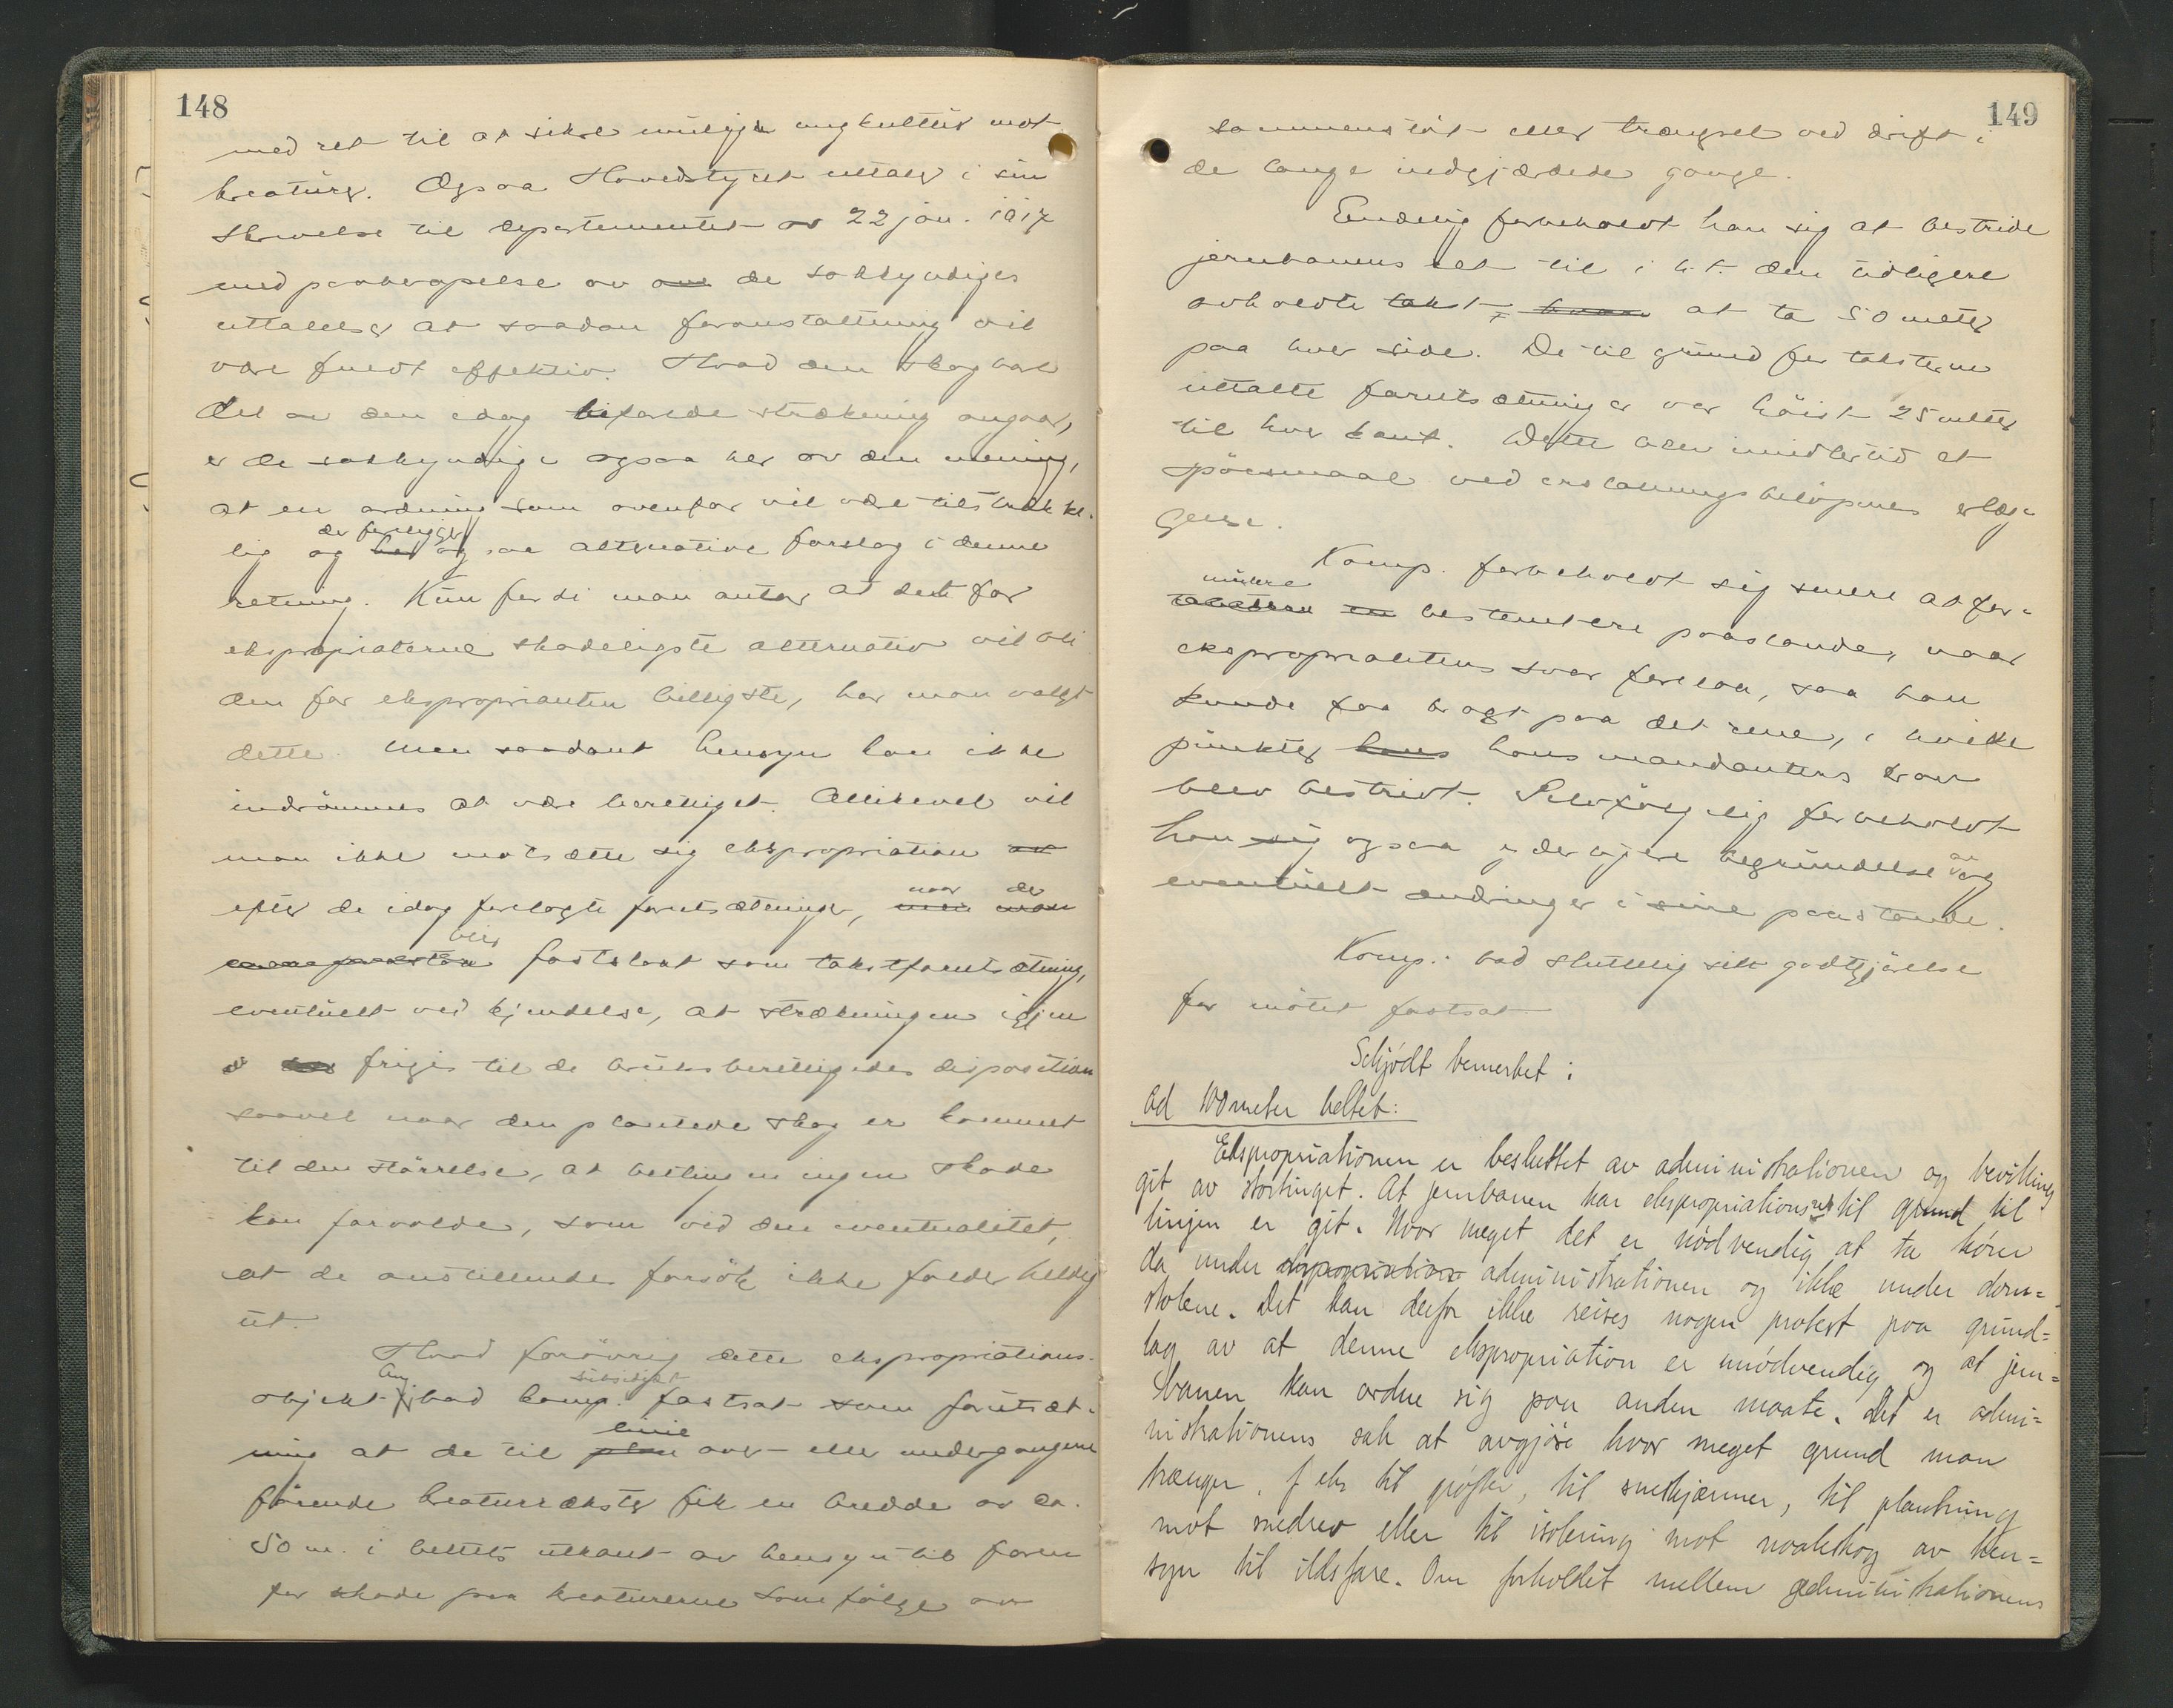 148
med ret til at sikre mulige ungkultur mot
kreaturer. Ogsaa Hovedstyret uttaler i sin
skrivelse til departementet av 22 jan. 1917
med paaberopelse av de sakkyndiges
uttalelser at saadan foranstaltning vil
være fuldt effektiv. Hvad den skogbare
del av den idag befarede strækning angaar,
er de sakkyndige ogsaa her av den mening,
at en ordning som ovenfor vil være tilstrække-
lig og der foreligger ogsaa alternative forslag i denne
retning. Kun fordi man antar at det for
ekspropriaterne skadeligste alternativ vil bli
den for eksproprianten billigste, har man valgt
dette. Men saadant hensyn kan ikke
indrömmes at være berettiget. Allikevel vil
man ikke motsætte sig ekspropriation
efter de idag forelagte forutsætninger, naar det
blir fastslaat som takstforutsætning,
eventuelt ved kjendelse, at strækningen igjen
frigis til de bruksberettigedes disposition
saavel naar den plantede skog er kommet
til den störrelse, at beitingen ingen skade
kan forvolde, som ved den eventualitet,
at de anstillende forsök ikke falder heldig
ut.
Hvad forövrig dette ekspropriations-
objekt ang. bad komp. subsidiært fastsat som forutsæt-
ning at de til linie over- eller undergangene
förende kreaturrækster fik en bredde av ca.
50 m. i beltets utkant av hensyn til faren
for skade paa kreaturerne som fölge av
149
sammenstöt eller trængsel ved drift i
de lange indgjærdede gange.
Endelig forbeholdt han sig at bestride
jernbanens ret til i h.t. den tidligere
avholdte takst at ta 50 meter
paa hver side. De til grund for taksterne
uttalte forutsætninger var höist 25 meter
til hver kant. Dette blev imidlertid et
spörsmaal ved erstatningsbelöpenes erlæg-
gelse.
Komp. forbeholdt sig senere at for-
mulere bestemtere paastande, naar
ekspropriantens svar forelaa, saa han
kunde faa bragt paa det rene, i hvilke
punkter hans mandanters krav
blev bestridt. Selvfölgelig forbeholdt
han sig ogsaa yderligere begrundelse av og
eventuelt ændringer i sine paastande.
Komp. bad sluttelig sit godtgjörelse
for mötet fastsat
Schjødt bemerket:
Ad 100meter beltet:
Ekspropriationen er besluttet av administrationen og bevilling
git av stortinget. At jernbanen har ekspropriationsret til grund til
linjen er git. Hvor meget det er nødvendig at ta hører
da under administrationen og ikke under dom=
stolene. Det kan derfor ikke reises nogen protest paa grund=
lag av at denne ekspropriation er unødvendig og at jern=
banen kan ordne sig paa anden maate. Det er admi=
nistrationens sak at avgjøre hvor meget grund man
trænger, f eks til grøfter, til sneskjærmer, til plantning
mot snedrev eller til isolering mot naaleskog av hen=
syn til ildsfare. Om forholdet mellem administrationens